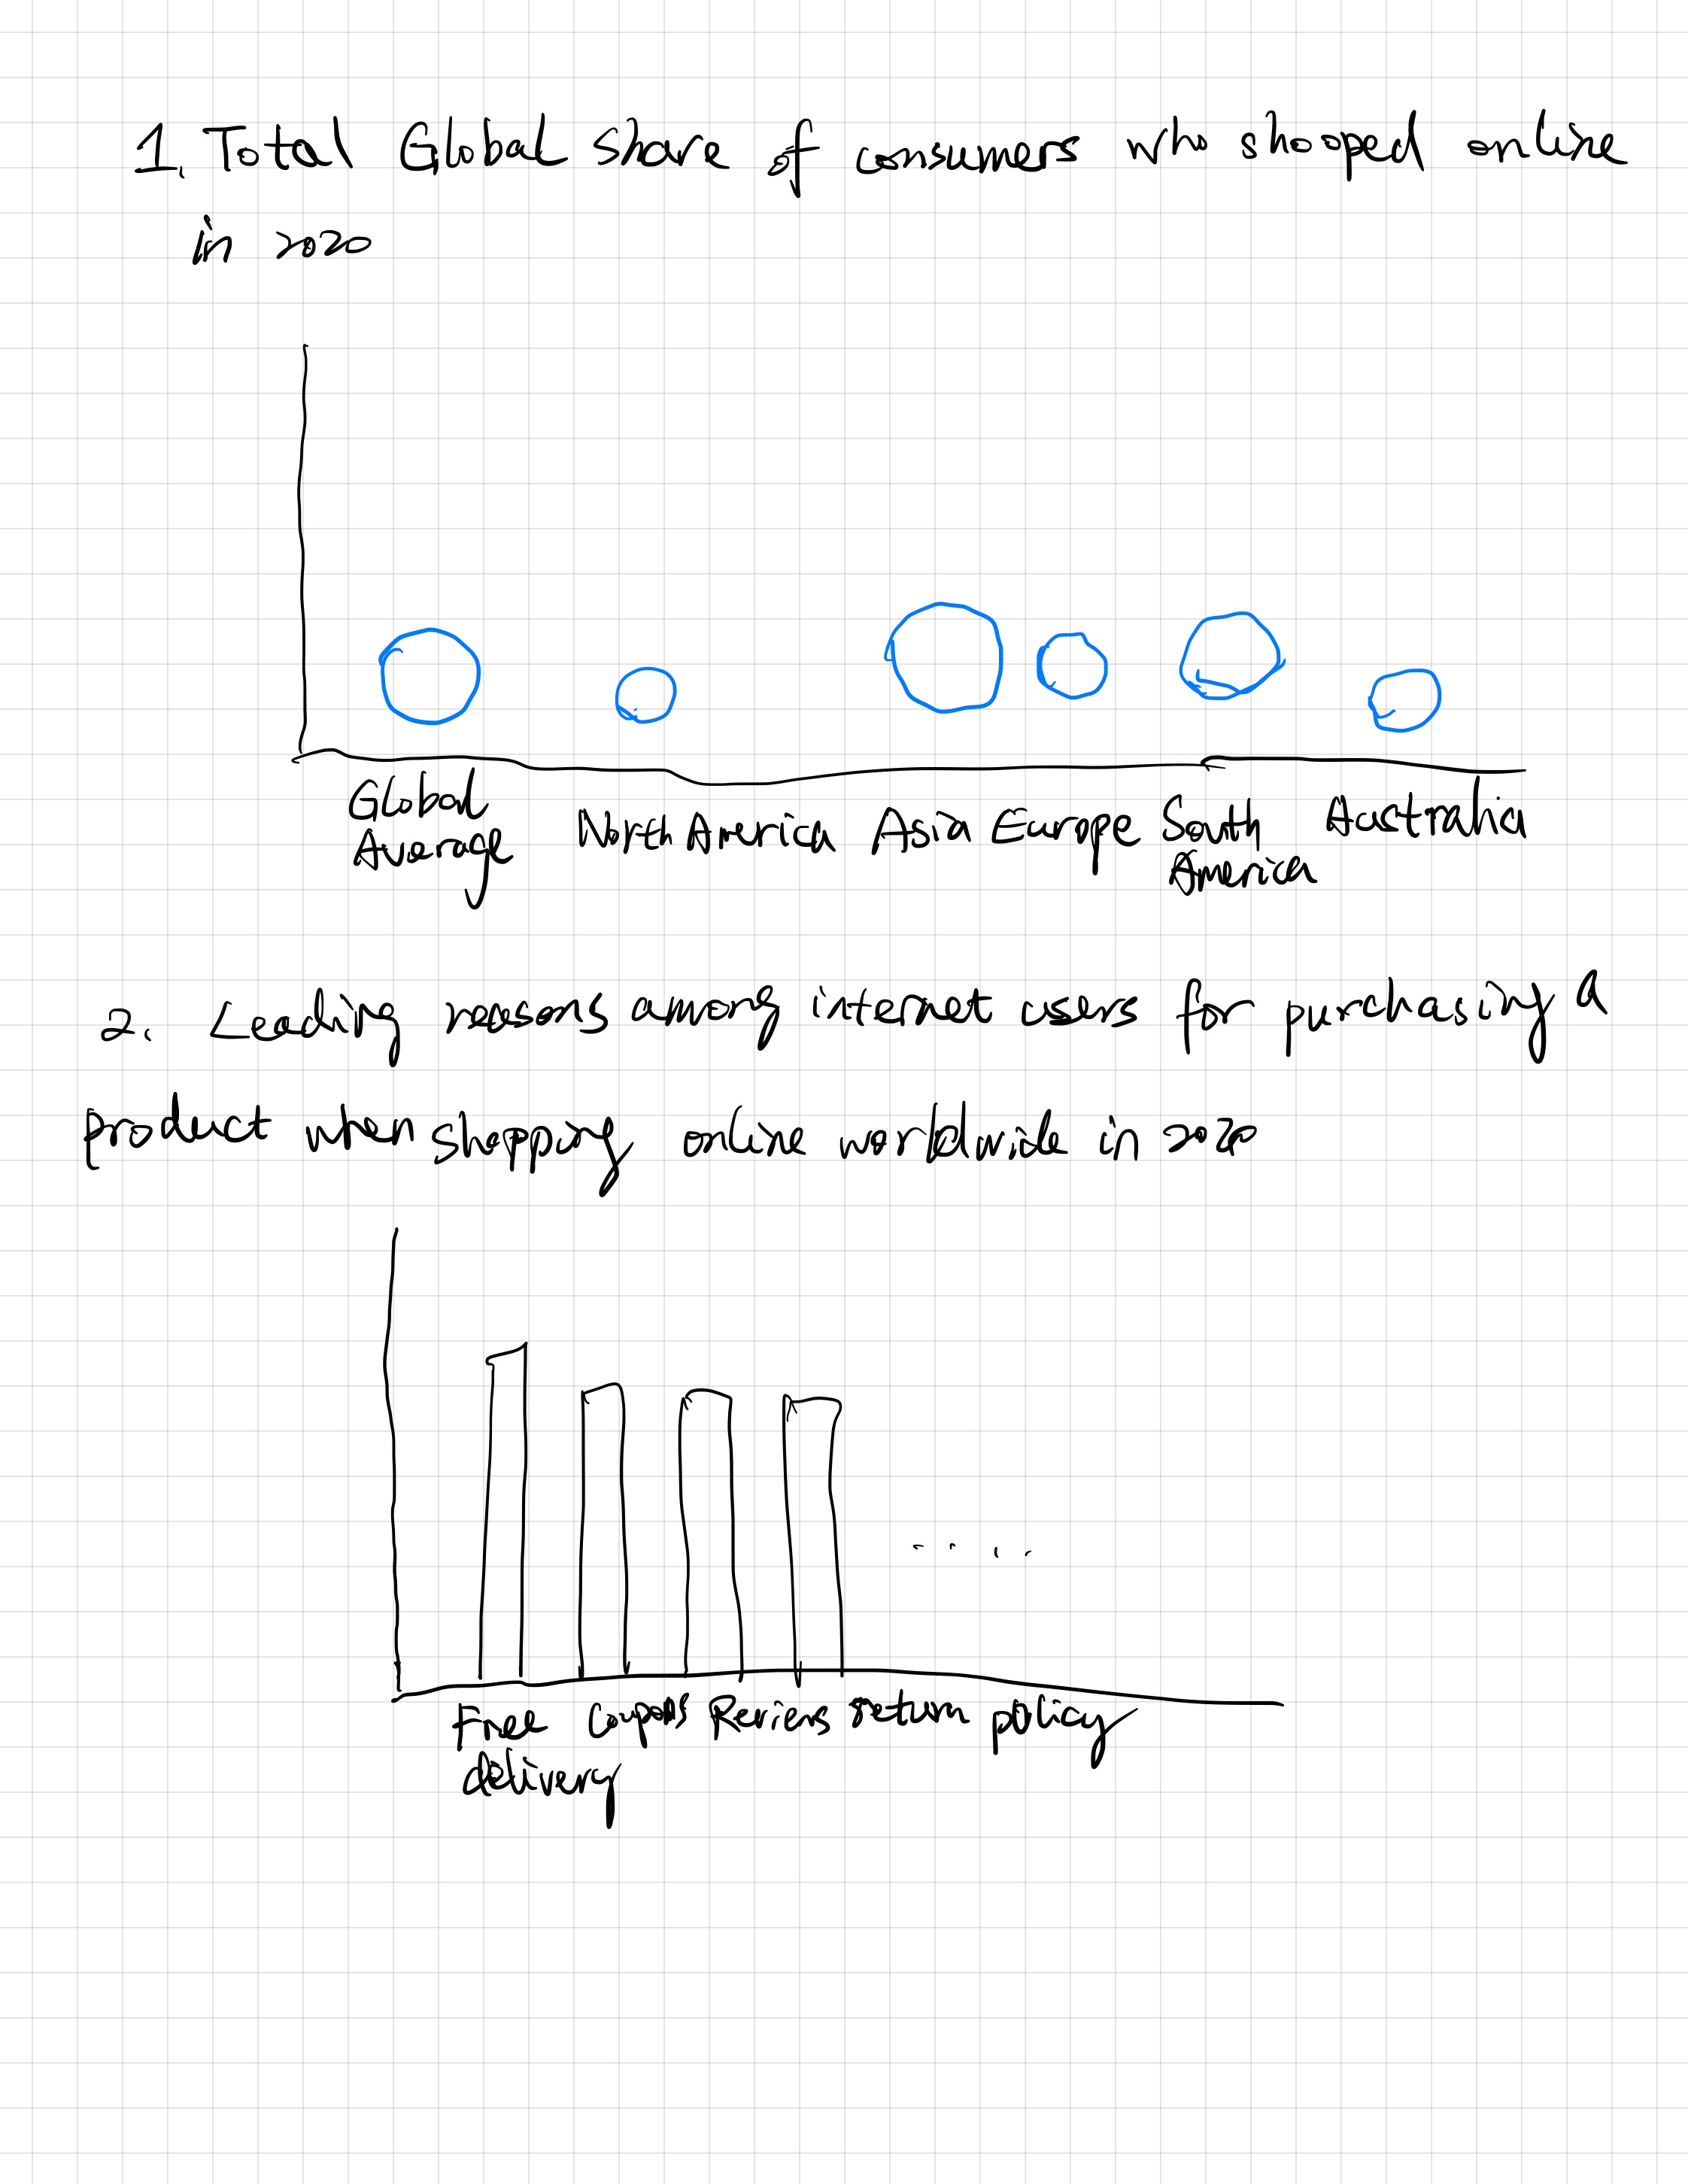 1. Total Global share of consumers who shooped online
in 2020
Global
Average
North America Asia Europe South
America
Australia
2. Leading reasons among internet users for purchasing a
product when shopping online worldwide in 2020
Free
delivery
Coupons Reviews return policy